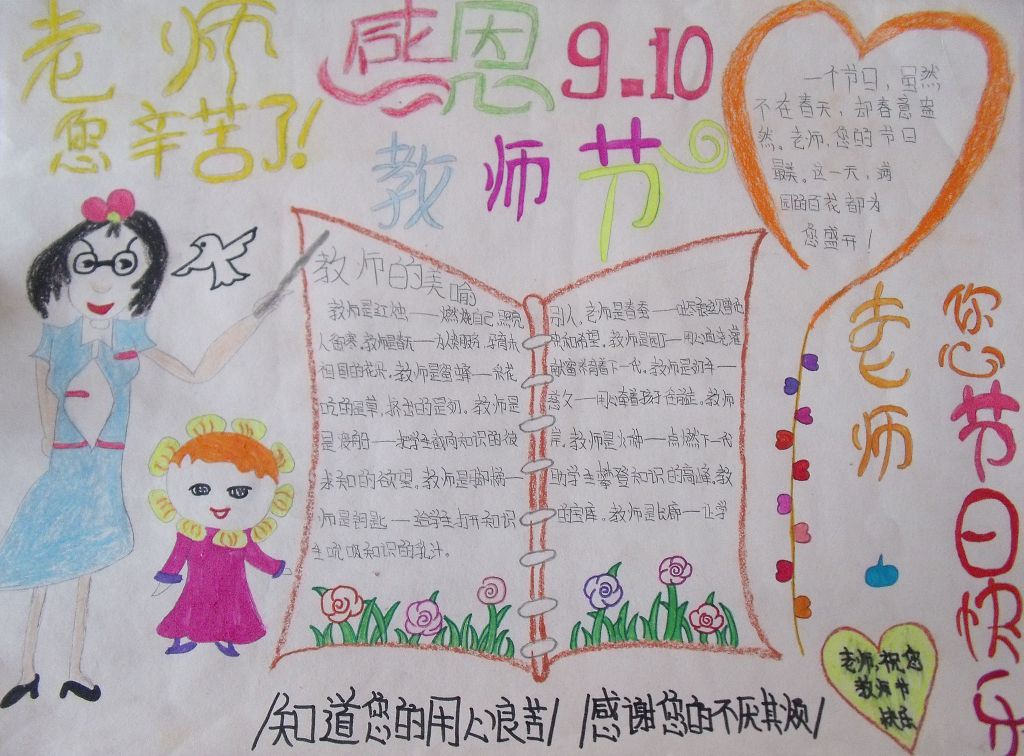 老师
您辛苦了!
感恩 9.10
教师节
一个节日,虽然
不在春天,却春意盎
然。老师,您的节日
最美。这一天,满
园的百花都为
您盛开!
教师的美喻
教师是红烛——燃烧自己,照亮
别人。老师是春蚕——
教师是
和希望。教师是园丁——用心血浇灌
祖国的花朵。教师是蜜蜂——采花
献蜜
下一代。教师是奶牛——
吃的是草,挤出的是奶。教师是
慈父——用心牵着孩子
教师
是渡船——把学生载向知识的彼
岸。教师是火种——点燃下一代
求知的欲望。教师是脚梯——
助学生攀登知识的高峰。教
师是钥匙——给学生打开知识
的宝库。教师是长廊——让学
生吮吸知识的乳汁。
老师
您节日快乐
老师,祝您
教师节
快乐
知道您的用心良苦
感谢您的不厌其烦